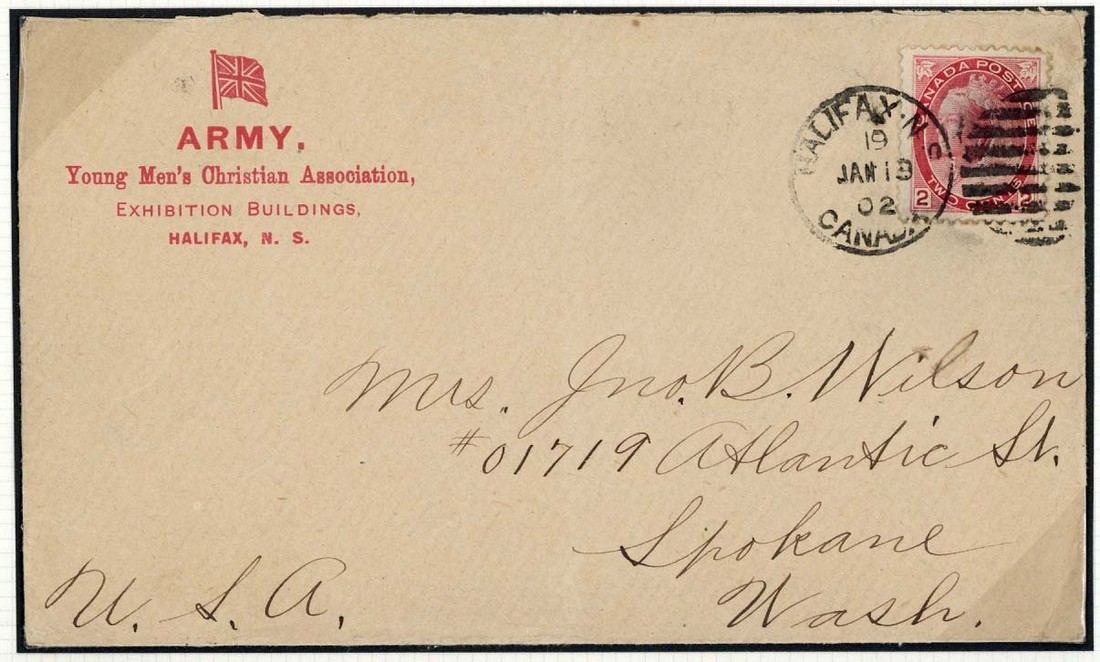 ARMY.
Young Men's Christian Association,
EXHIBITION BUILDINGS,
HALIFAX, N. S.
HALIFAX, N S
19
JAN 18
02
CANADA
CANADA POSTAGE
2 TWO CENTS 2
Mrs. Jno. B. Wilson
#01719 Atlantic St.
Spokane
Wash.
U. S. A.